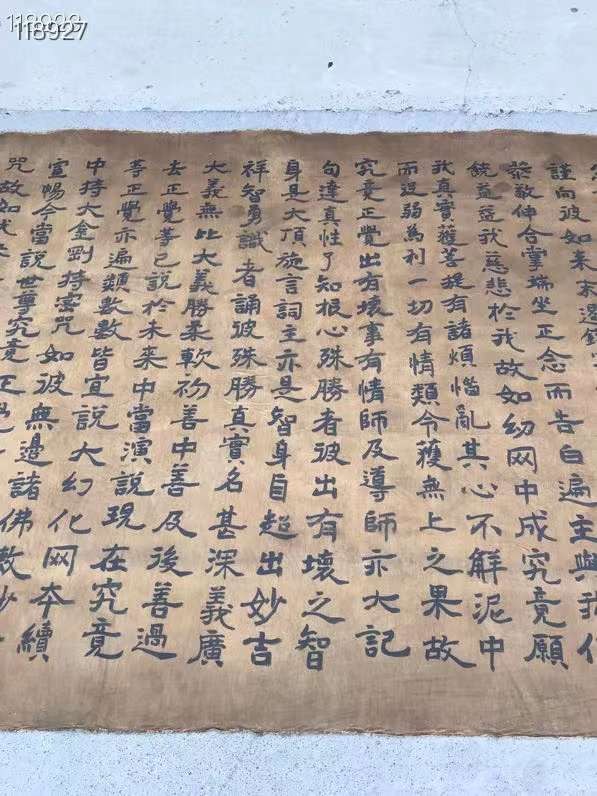 謹向彼如来
恭敬伸合掌端坐正念而告白遍主與我作
饒益慈我慈悲於我故如幻网中成究竟願
我真實獲菩提有諸煩惱亂其心不解泥中
而没弱為利一切有情類令獲無上之果故
究竟正覺出有壞事有情師及導師亦大記
句達真性了知根心殊勝者彼出有壞之智
身是大頂旋言詞主亦是智身自超出妙吉
祥智勇識者誦彼殊勝真實名甚深義廣
大義無比大義勝柔軟初善中善及後善過
去正覺等已說於未来中當演說現在究竟
等正覺亦遍類數數皆宣說大幻化网本續
中持大金剛持密咒如彼無邊諸佛敕妙
宣暢今當說世尊究竟正
咒故如
118927